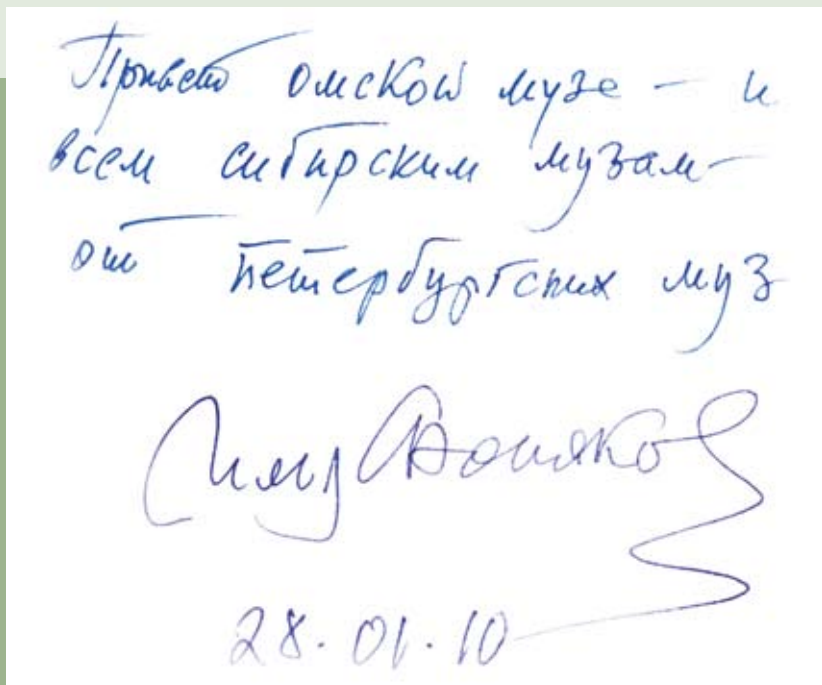 Привет омской музе – и
всем сибирским музам –
от петербургских муз
28.01.10